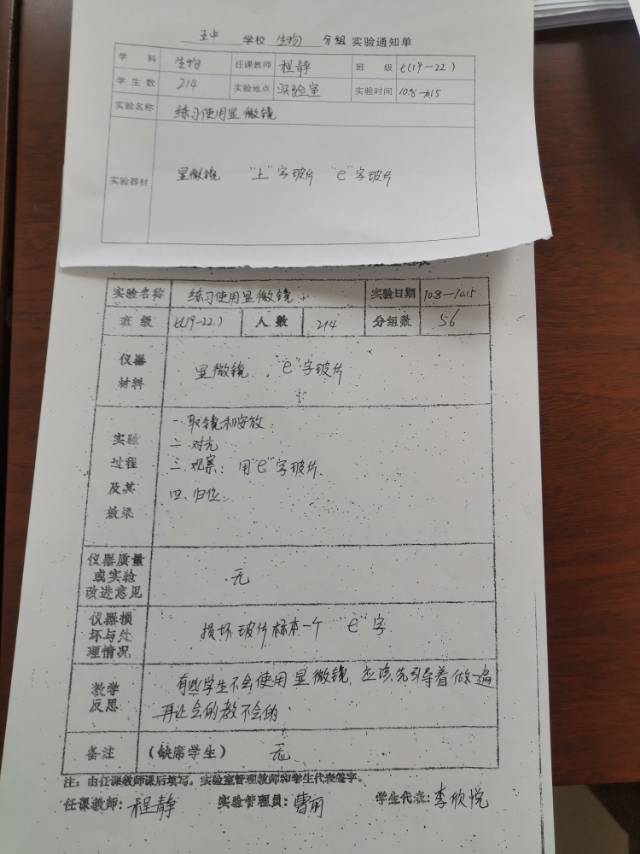 五中 学校 生物 分组 实验通知单
学科 生物 任课教师 程静 班级 七(19-22)
学生数 214 实验地点 实验室 实验时间 10.8-10.15
实验名称 练习使用显微镜
实验器材 显微镜 "上"字玻片 "e"字玻片
实验名称 练习使用显微镜 实验日期 10.8-10.15
班级 七(19-22) 人数 214 分组数 56
仪器材料 显微镜 "e"字玻片
实验过程及其效果
一.取镜和安放
二.对光
三.观察:用"e"字玻片
四.归位
仪器质量或实验改进意见 无
仪器损坏与处理情况 损坏玻片标本一个 "e"字
教学反思 有些学生不会使用显微镜,应该先引导着做一遍
再让会的教不会的
备注 (缺席学生) 无
注:由任课教师课后填写,实验室管理教师和学生代表签字。
任课教师:程静 实验管理员:曹丽 学生代表:李欣悦